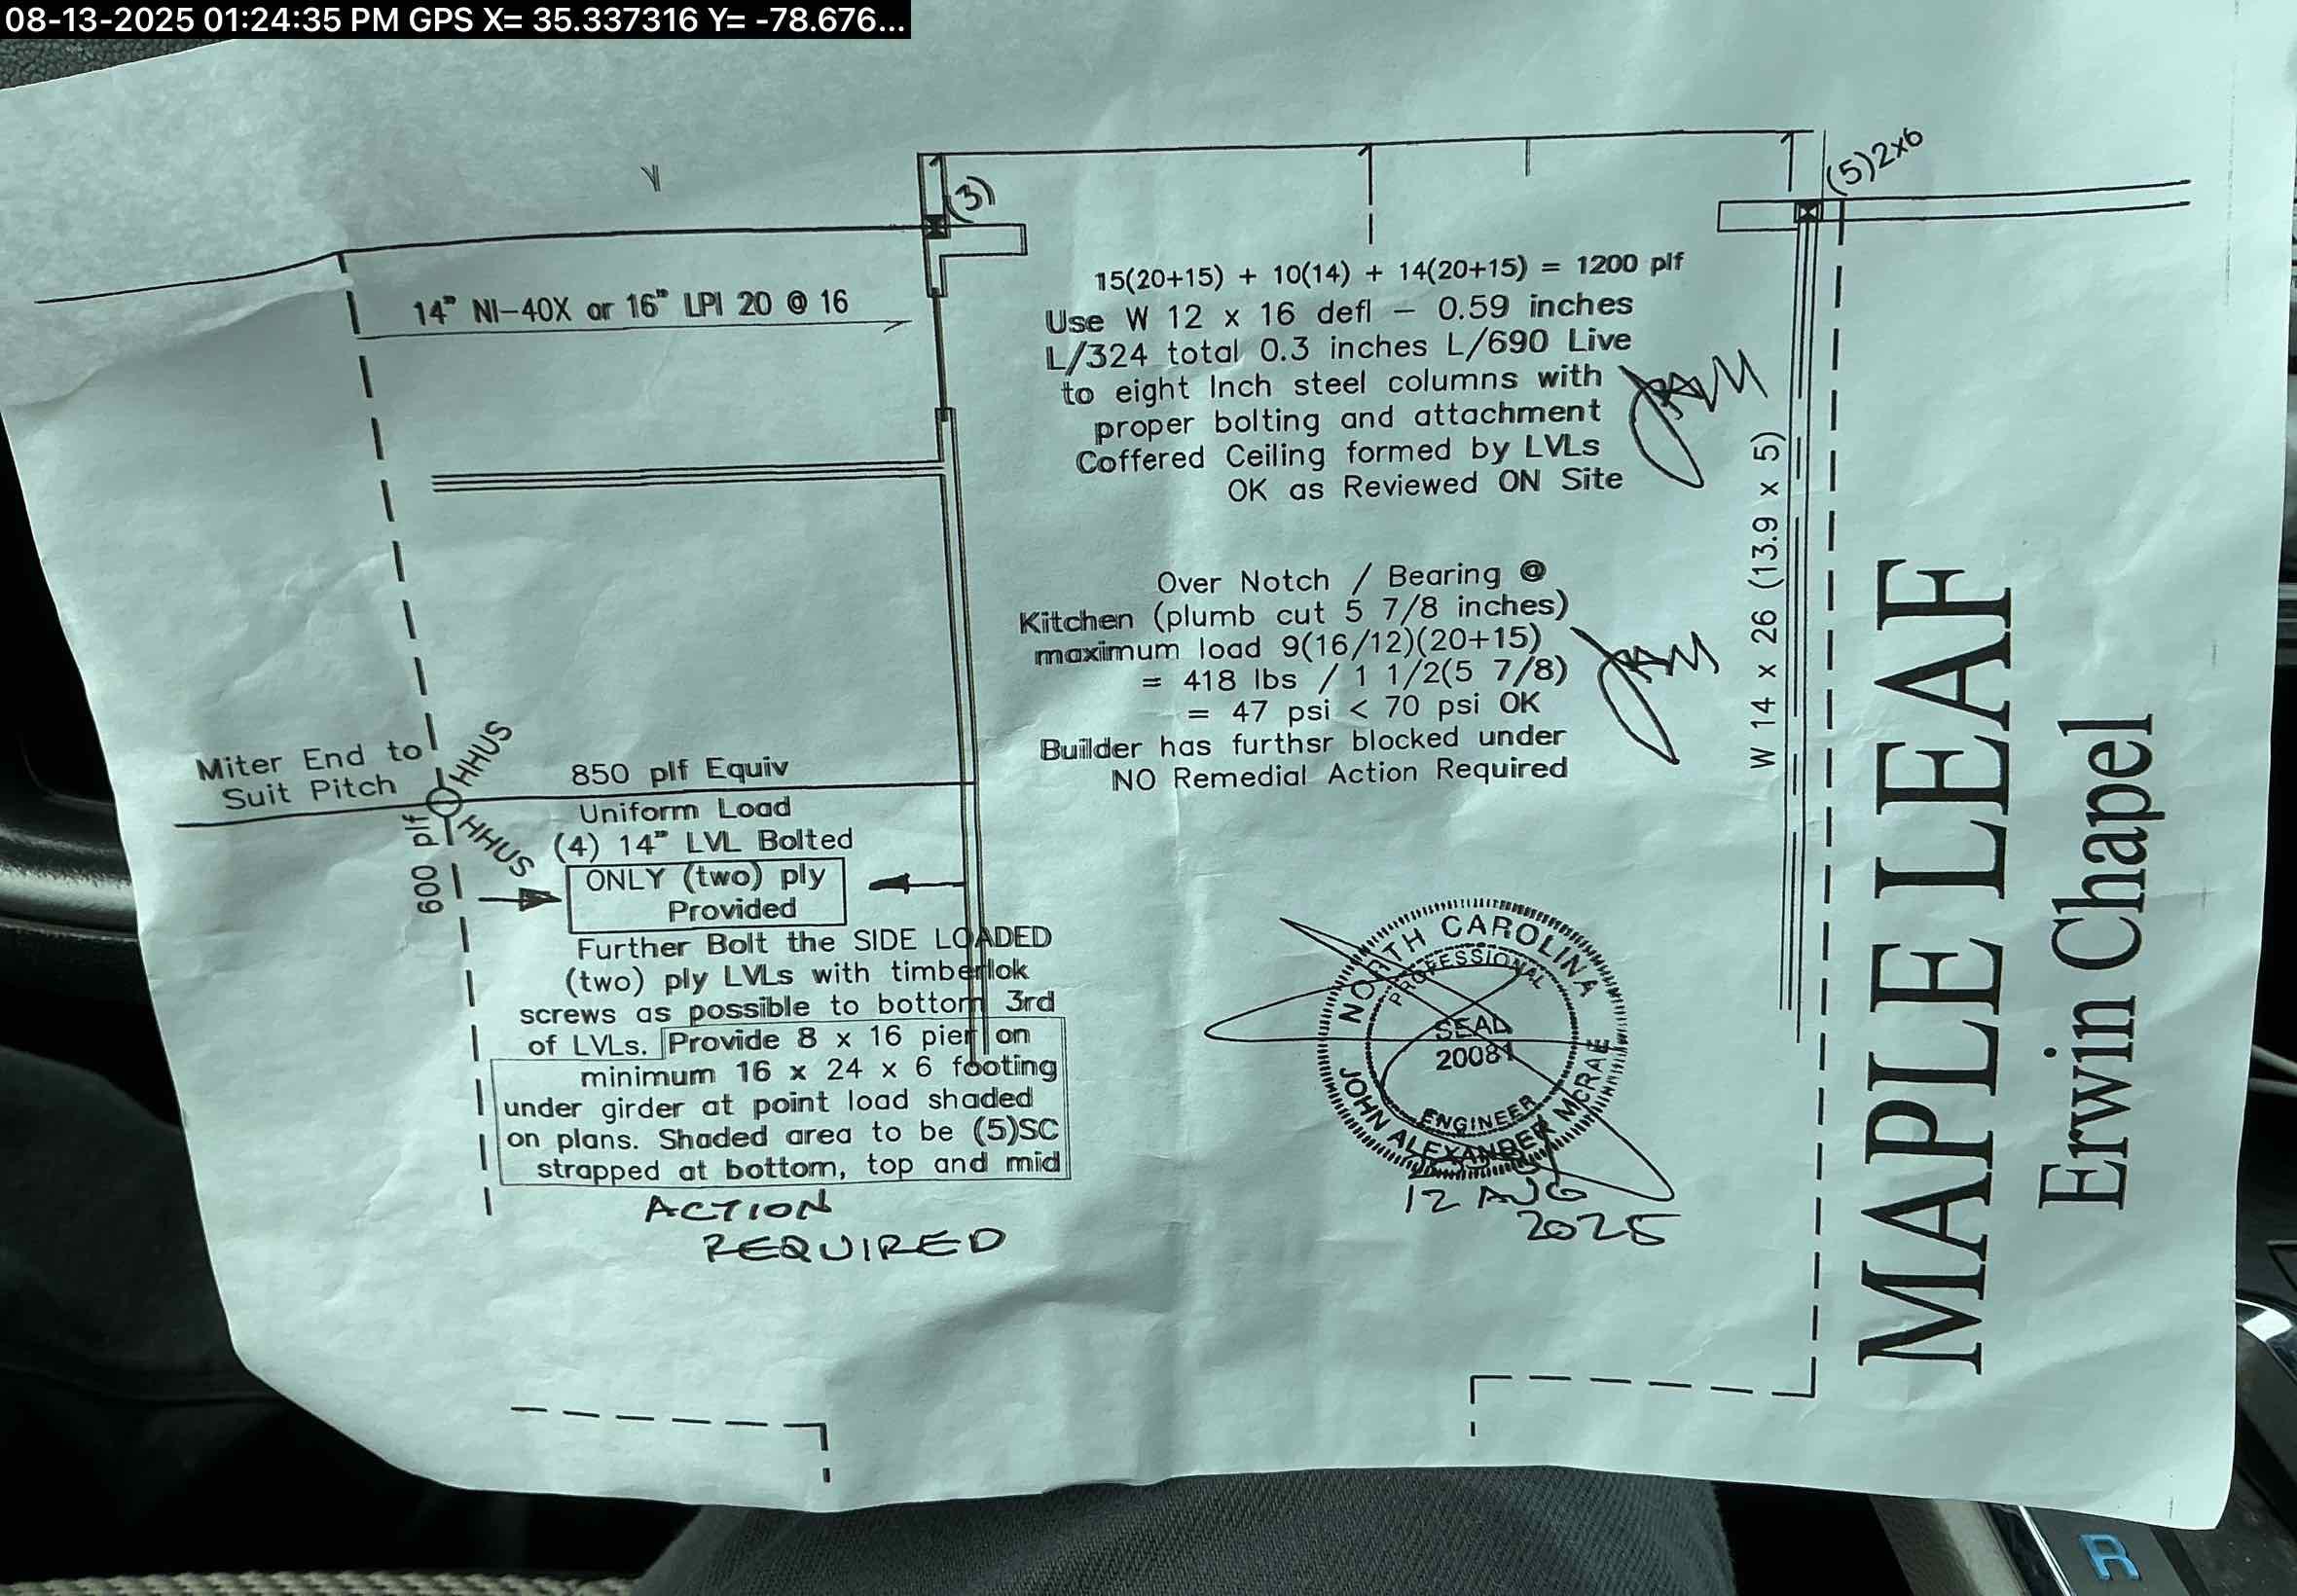 08-13-2025 01:24:35 PM GPS X= 35.337316 Y= -78.676...
(3)
(5)2x6
14" NI-40X or 16" LPI 20 @ 16
15(20+15) + 10(14) + 14(20+15) = 1200 plf
Use W 12 x 16 defl - 0.59 inches
L/324 total 0.3 inches L/690 Live
to eight Inch steel columns with
proper bolting and attachment
Coffered Ceiling formed by LVLs
OK as Reviewed ON Site
JAM
W 14 x 26 (13.9 x 5)
Over Notch / Bearing @
Kitchen (plumb cut 5 7/8 inches)
maximum load 9(16/12)(20+15)
= 418 lbs / 1 1/2(5 7/8)
= 47 psi < 70 psi OK
Builder has furthsr blocked under
NO Remedial Action Required
JAM
Miter End to
Suit Pitch
HHUS
HHUS
600 plf
850 plf Equiv
Uniform Load
(4) 14" LVL Bolted
ONLY (two) ply
Provided
Further Bolt the SIDE LOADED
(two) ply LVLs with timberlok
screws as possible to bottom 3rd
of LVLs. Provide 8 x 16 pier on
minimum 16 x 24 x 6 footing
under girder at point load shaded
on plans. Shaded area to be (5)SC
strapped at bottom, top and mid
ACTION
REQUIRED
NORTH CAROLINA
PROFESSIONAL
SEAL
20081
ENGINEER
JOHN ALEXANDER MCRAE
12 AUG
2025
MAPLE LEAF
Erwin Chapel
R